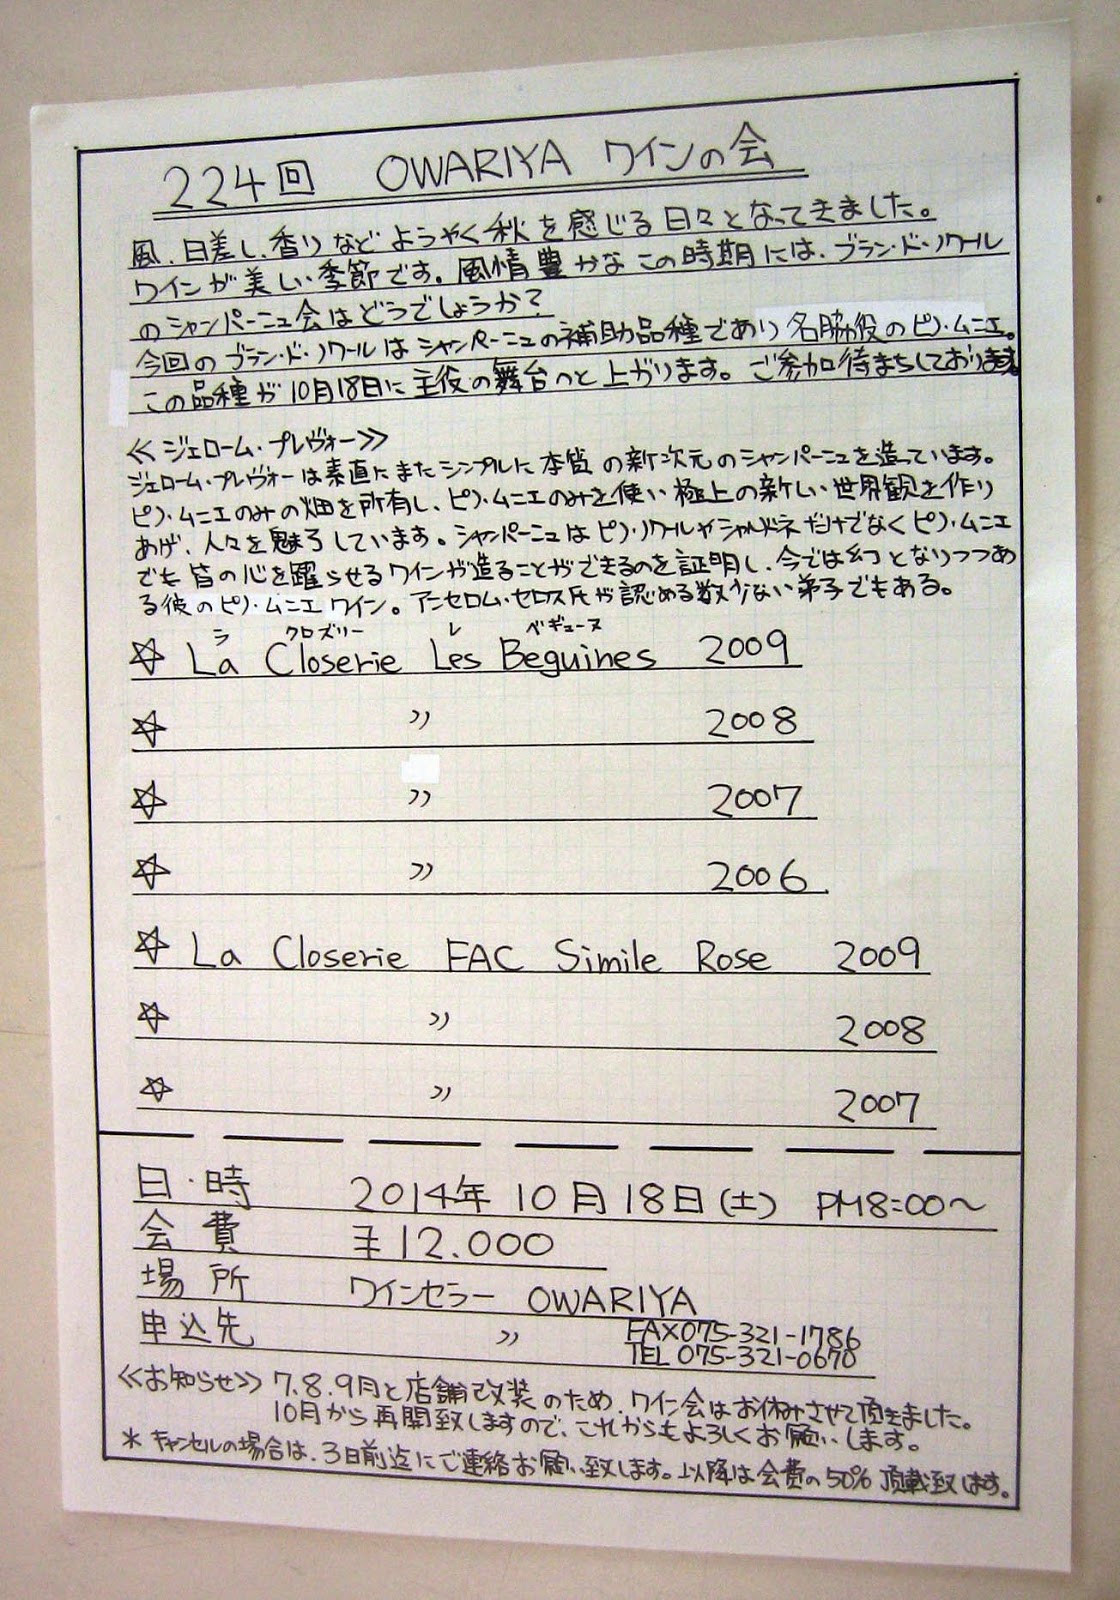 224回 OWARIYA ワインの会
風、日差し、香りなど ようやく秋を感じる日々となってきました。
ワインが美しい季節です。風情豊かなこの時期には、ブラン・ド・ノワール
のシャンパーニュ会はどうでしょうか？
今回のブラン・ド・ノワールはシャンパーニュの補助品種であり名脇役のピノ・ムニエ。
この品種が10月18日に主役の舞台へと上がります。ご参加待まちしております。
≪ジェローム・プレヴォー≫
ジェローム・プレヴォーは素直にまたシンプルに本質の新次元のシャンパーニュを造っています。
ピノ・ムニエのみの畑を所有し、ピノ・ムニエのみを使い極上の新しい世界観を作り
あげ、人々を魅了しています。シャンパーニュはピノ・ノワールやシャルドネだけでなくピノ・ムニエ
でも皆の心を躍らせるワインが造ることができるのを証明し、今では幻となりつつあ
る彼のピノ・ムニエワイン。アンセロム・セロス氏が認める数少ない弟子でもある。
ラ クロズリー レ ベギューヌ
☆ La Closerie Les Beguines 2009
☆ 〃 2008
☆ 〃 2007
☆ 〃 2006
☆ La Closerie FAC Simile Rose 2009
☆ 〃 2008
☆ 〃 2007
日・時 2014年10月18日(土) PM8:00〜
会費 ¥12.000
場所 ワインセラー OWARIYA
申込先 〃 FAX075-321-1786
TEL 075-321-0670
≪お知らせ≫ 7.8.9月と店舗改装のため、ワイン会はお休みさせて頂きました。
10月から再開致しますので、これからもよろしくお願いします。
* キャンセルの場合は、3日前迄にご連絡お願い致します。以降は会費の50%頂戴致します。